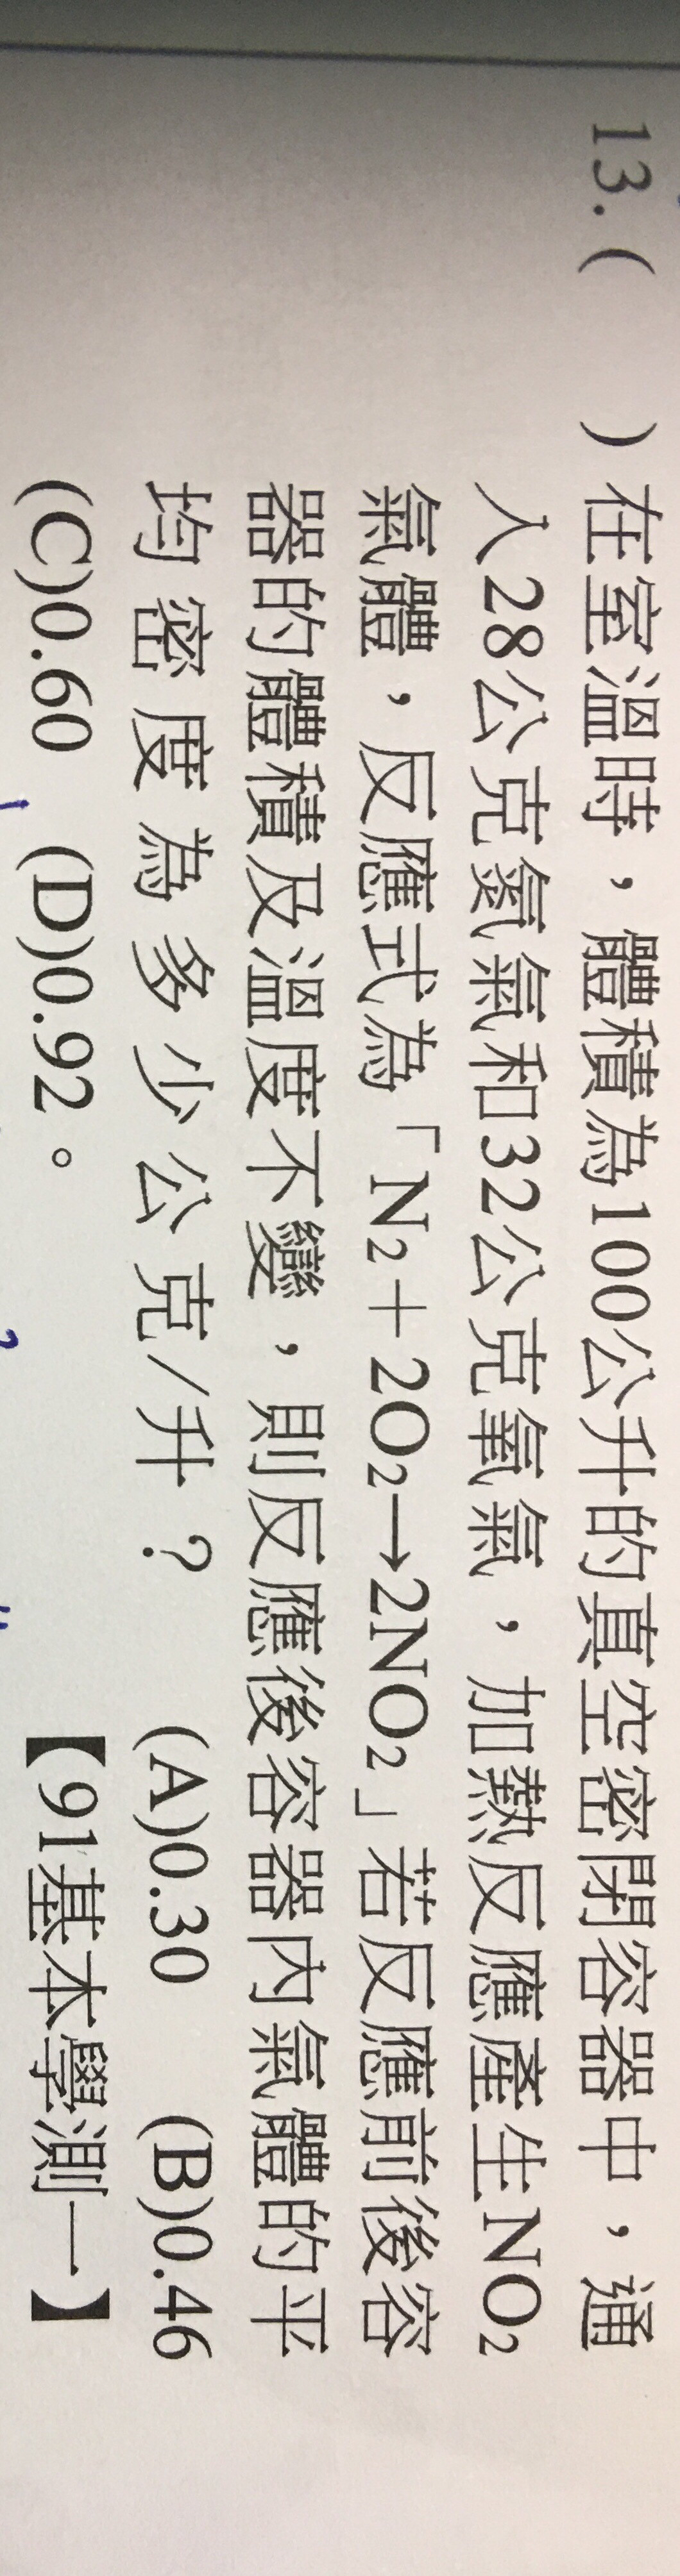 13.(　　)在室溫時，體積為100公升的真空密閉容器中，通
入28公克氮氣和32公克氧氣，加熱反應產生NO₂
氣體，反應式為「N₂＋2O₂→2NO₂」若反應前後容
器的體積及溫度不變，則反應後容器內氣體的平
均密度為多少公克/升？　(A)0.30　(B)0.46
(C)0.60　(D)0.92。　【91基本學測一】